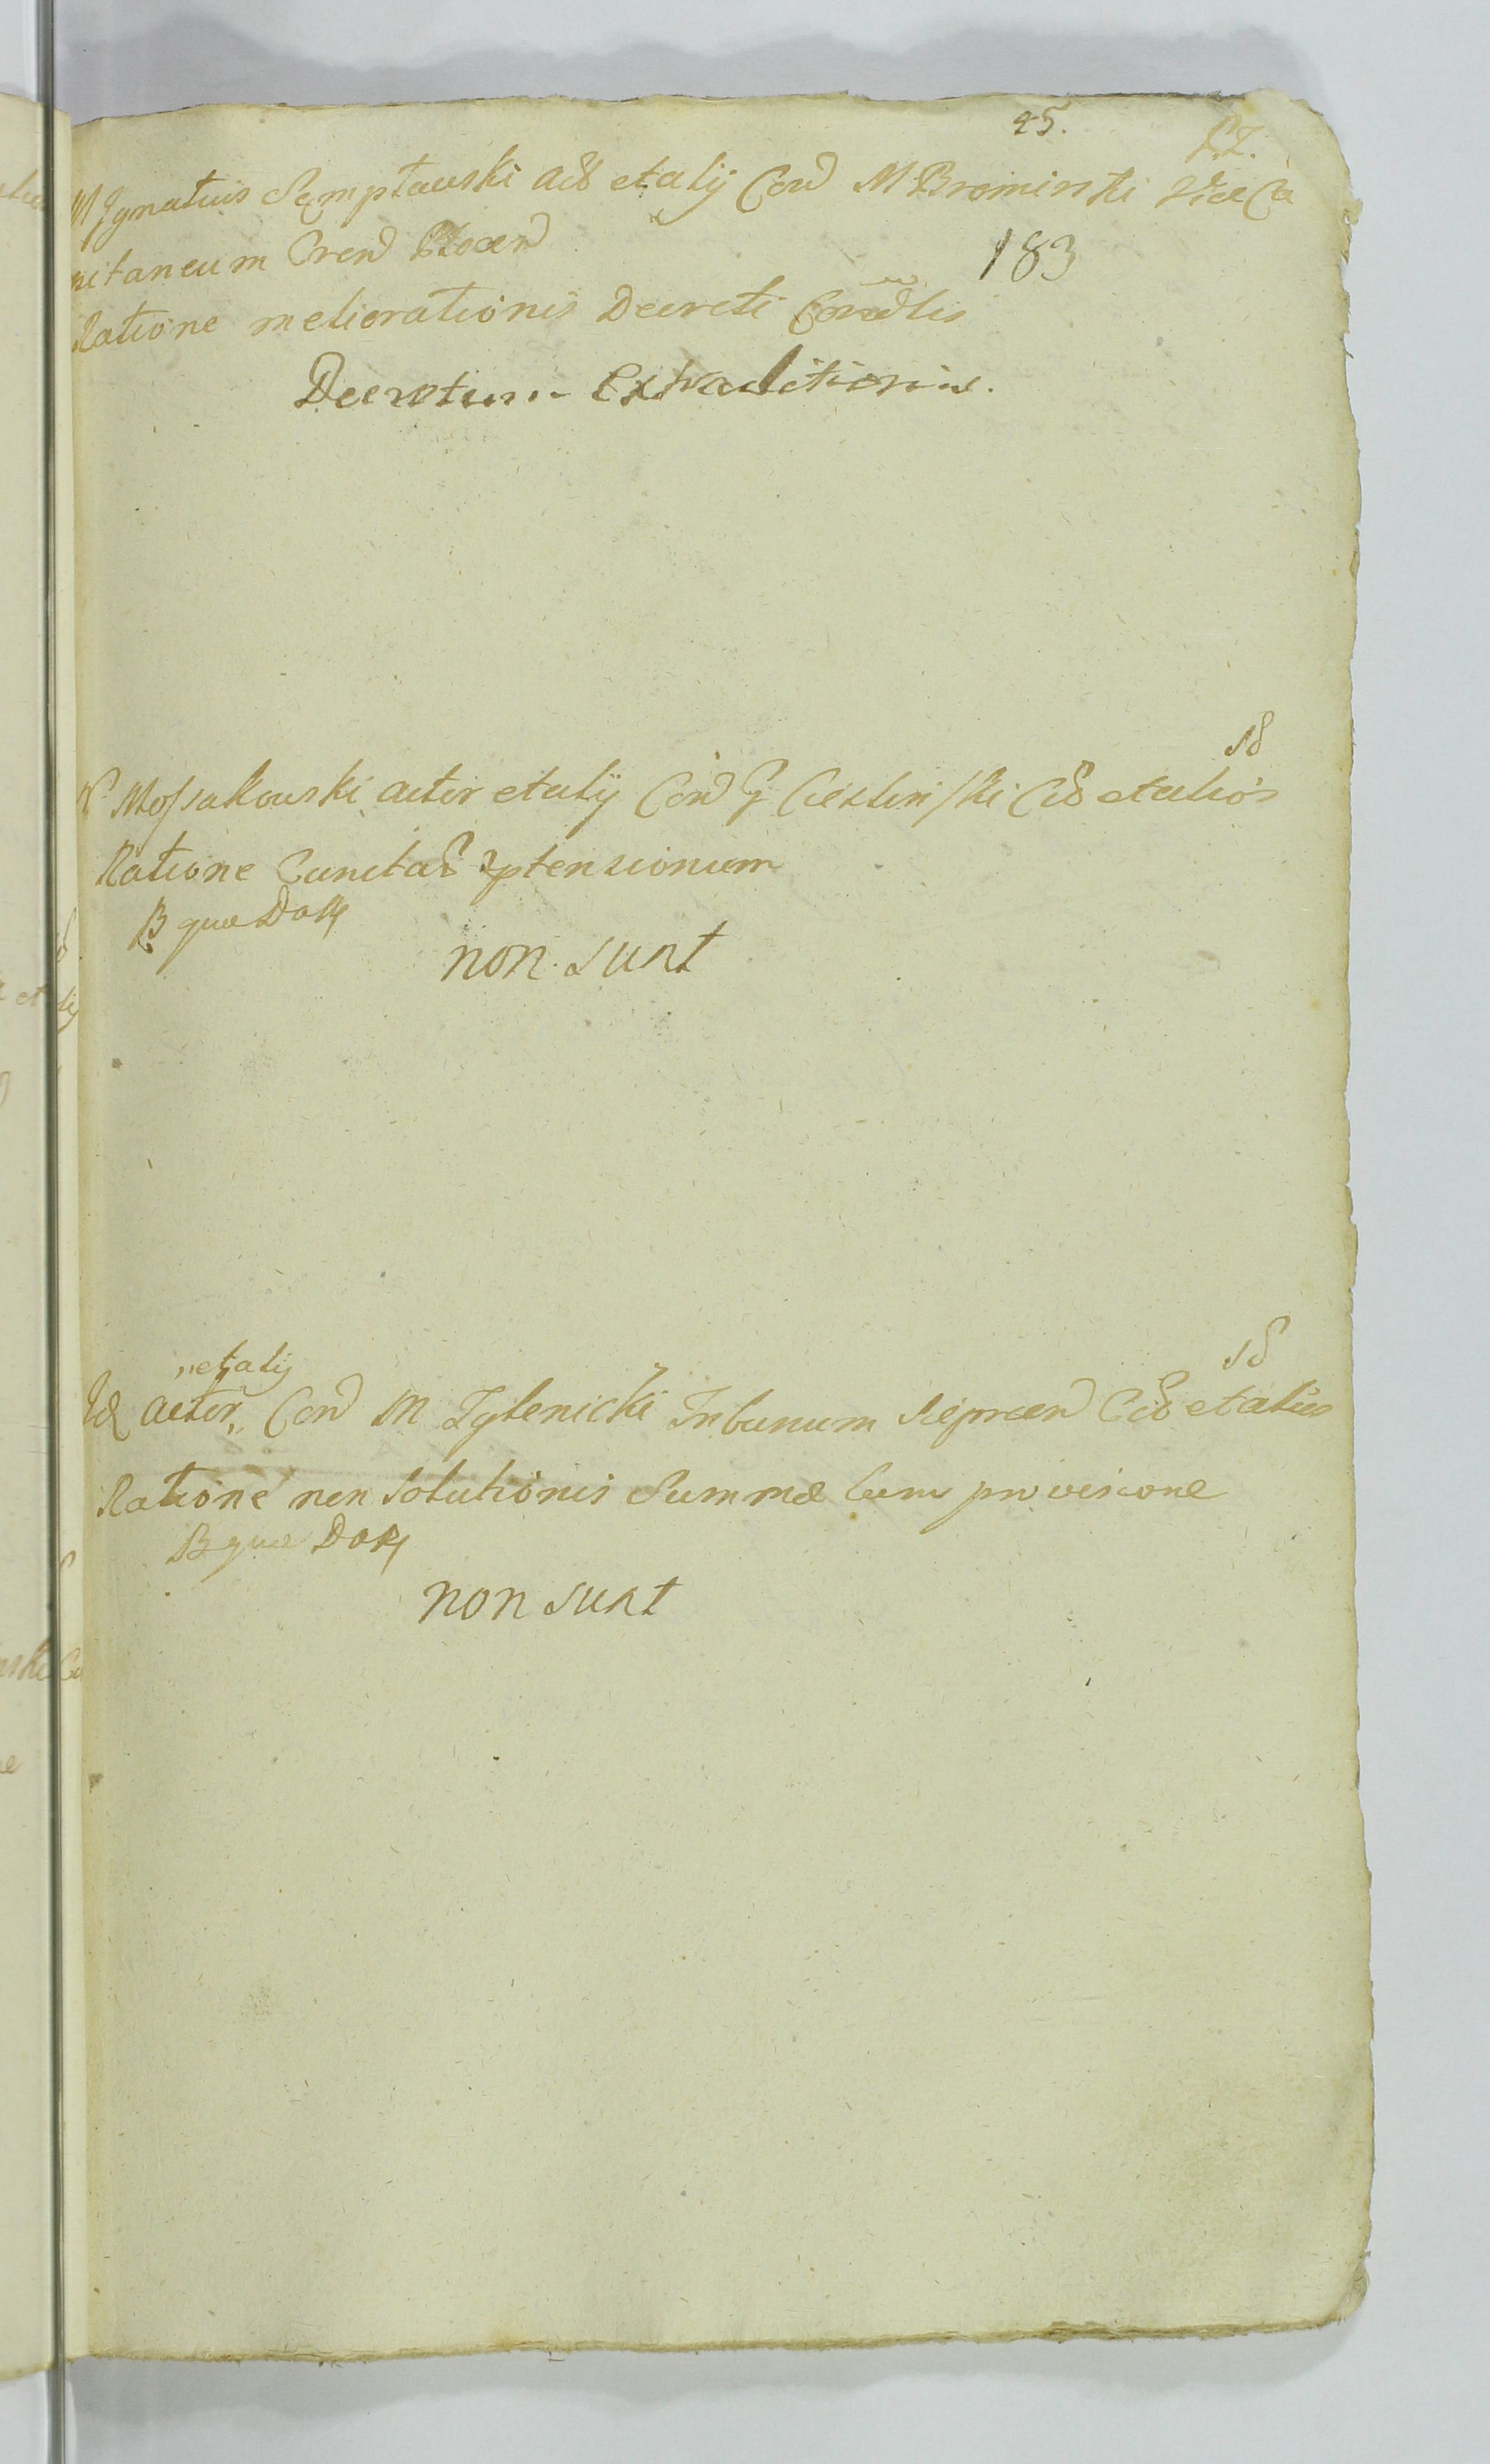 45.
M Ignatius Sempławski act et alij Con M Bromirski Vice Ca
pitaneum Cren Płocen
183
Ratione meliorationis Decreti Condlis
Decretum Extraditionis.
Mossakowski actor et alij Con G Ciesliński et alios
Ratione Cunctar ptensionum
R quae Dort
non sunt
et alij
Id actor Con M Zglenicki Tribunum Sieprcen et alios
Ratione non Solutionis Summae Cum provisione
R quae Dort
non sunt